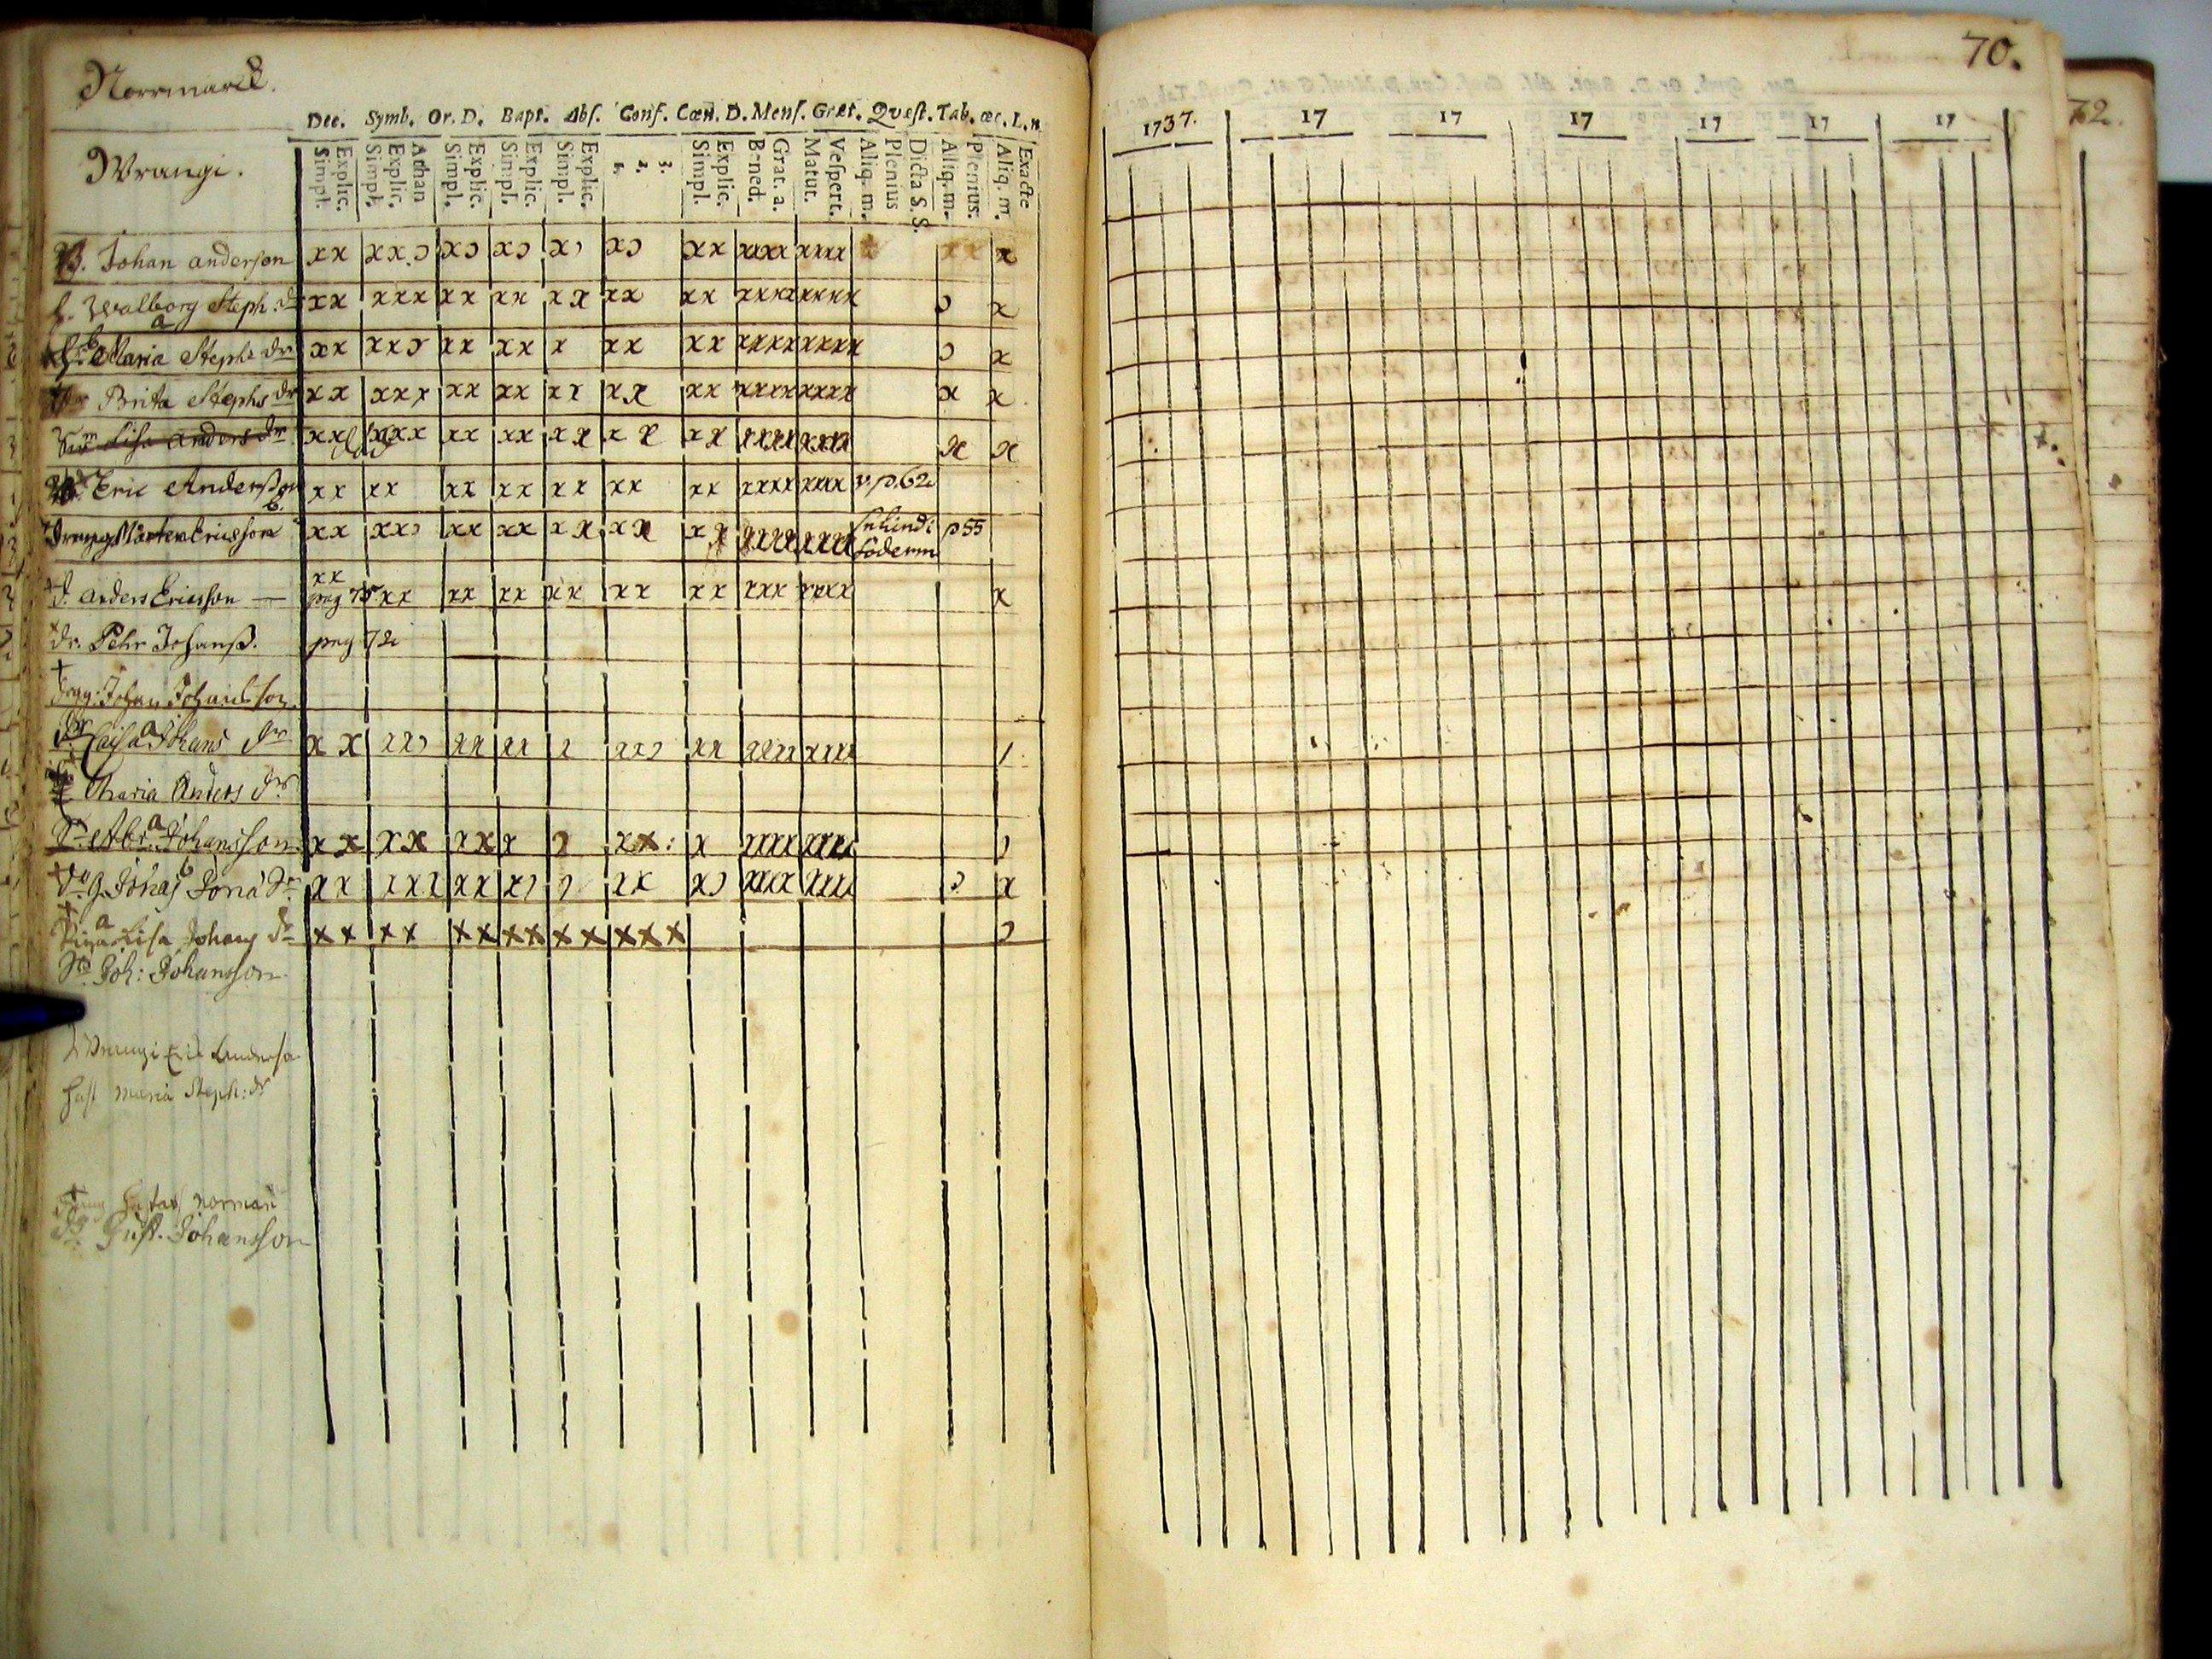 Norrmarck.
70.
72.
Dec. Symb. Or. D. Bapt. Abs. Conf. Cœn. D. Mens. Grat. Qvæst. Tab. œc. L. n
1737. 17 17 17 17 17 17
Wrangi.
Simpl. Explic. Simpl. Explic. Athan Simpl. Explic. Simpl. Explic. Simpl. Explic. 1. 2. 3. Simpl. Explic. Bened. Grat. a. Matut. Vespert. Aliq. m. Plenius Dicta S. S. Aliq. m. Plenius. Aliq. m. Exacte
B. Johan anderson xx xx xɔ xɔ xɔ xx xxxx xxxx xx x
h. Walborg Steph: dr xx xxx xx xx xx xx xx xxxx xxxx ɔ x
Maria Stephs dr xx xxɔ xx xx x xx xx xxxx xxxx ɔ x
Brita Stephs dr xx xxx xx xx xx xx xx xxxx xxxx x x
Lisa anders dr xx xxx xx xx xx xx xx xxxx xxxx x x
Eric Anderßon xx xx xx xx xx xx xx xxxx xxxx v. p. 62
Mårten Ericsson xx xxɔ xx xx xx xx xx xxxx xxxx p 55
Söderm
d. anders Ericsson — xx xx xx xx xx xx xx xxx xxxx x
pag 75
dr. Pehr Johanß. pag 72
Johan Johansson
Caisa Johans dr x x xxɔ xx xx x xxɔ xx xxxx xxxx
Maria Anders dr
Abr. Johansson x x xx xx x ɔ xx: x xxxx xxxx ɔ
Johas Jona dr xx xxx xx xɔ ɔ xx xɔ xxxx xxxx ɔ x
Piga Lisa Johans dr xx xx xx xx xx xxx ɔ
Joh: Johansson
Wrangi Eric Anderso
hust Maria Steph: dr
Gustaf Norman
Gust. Johansson